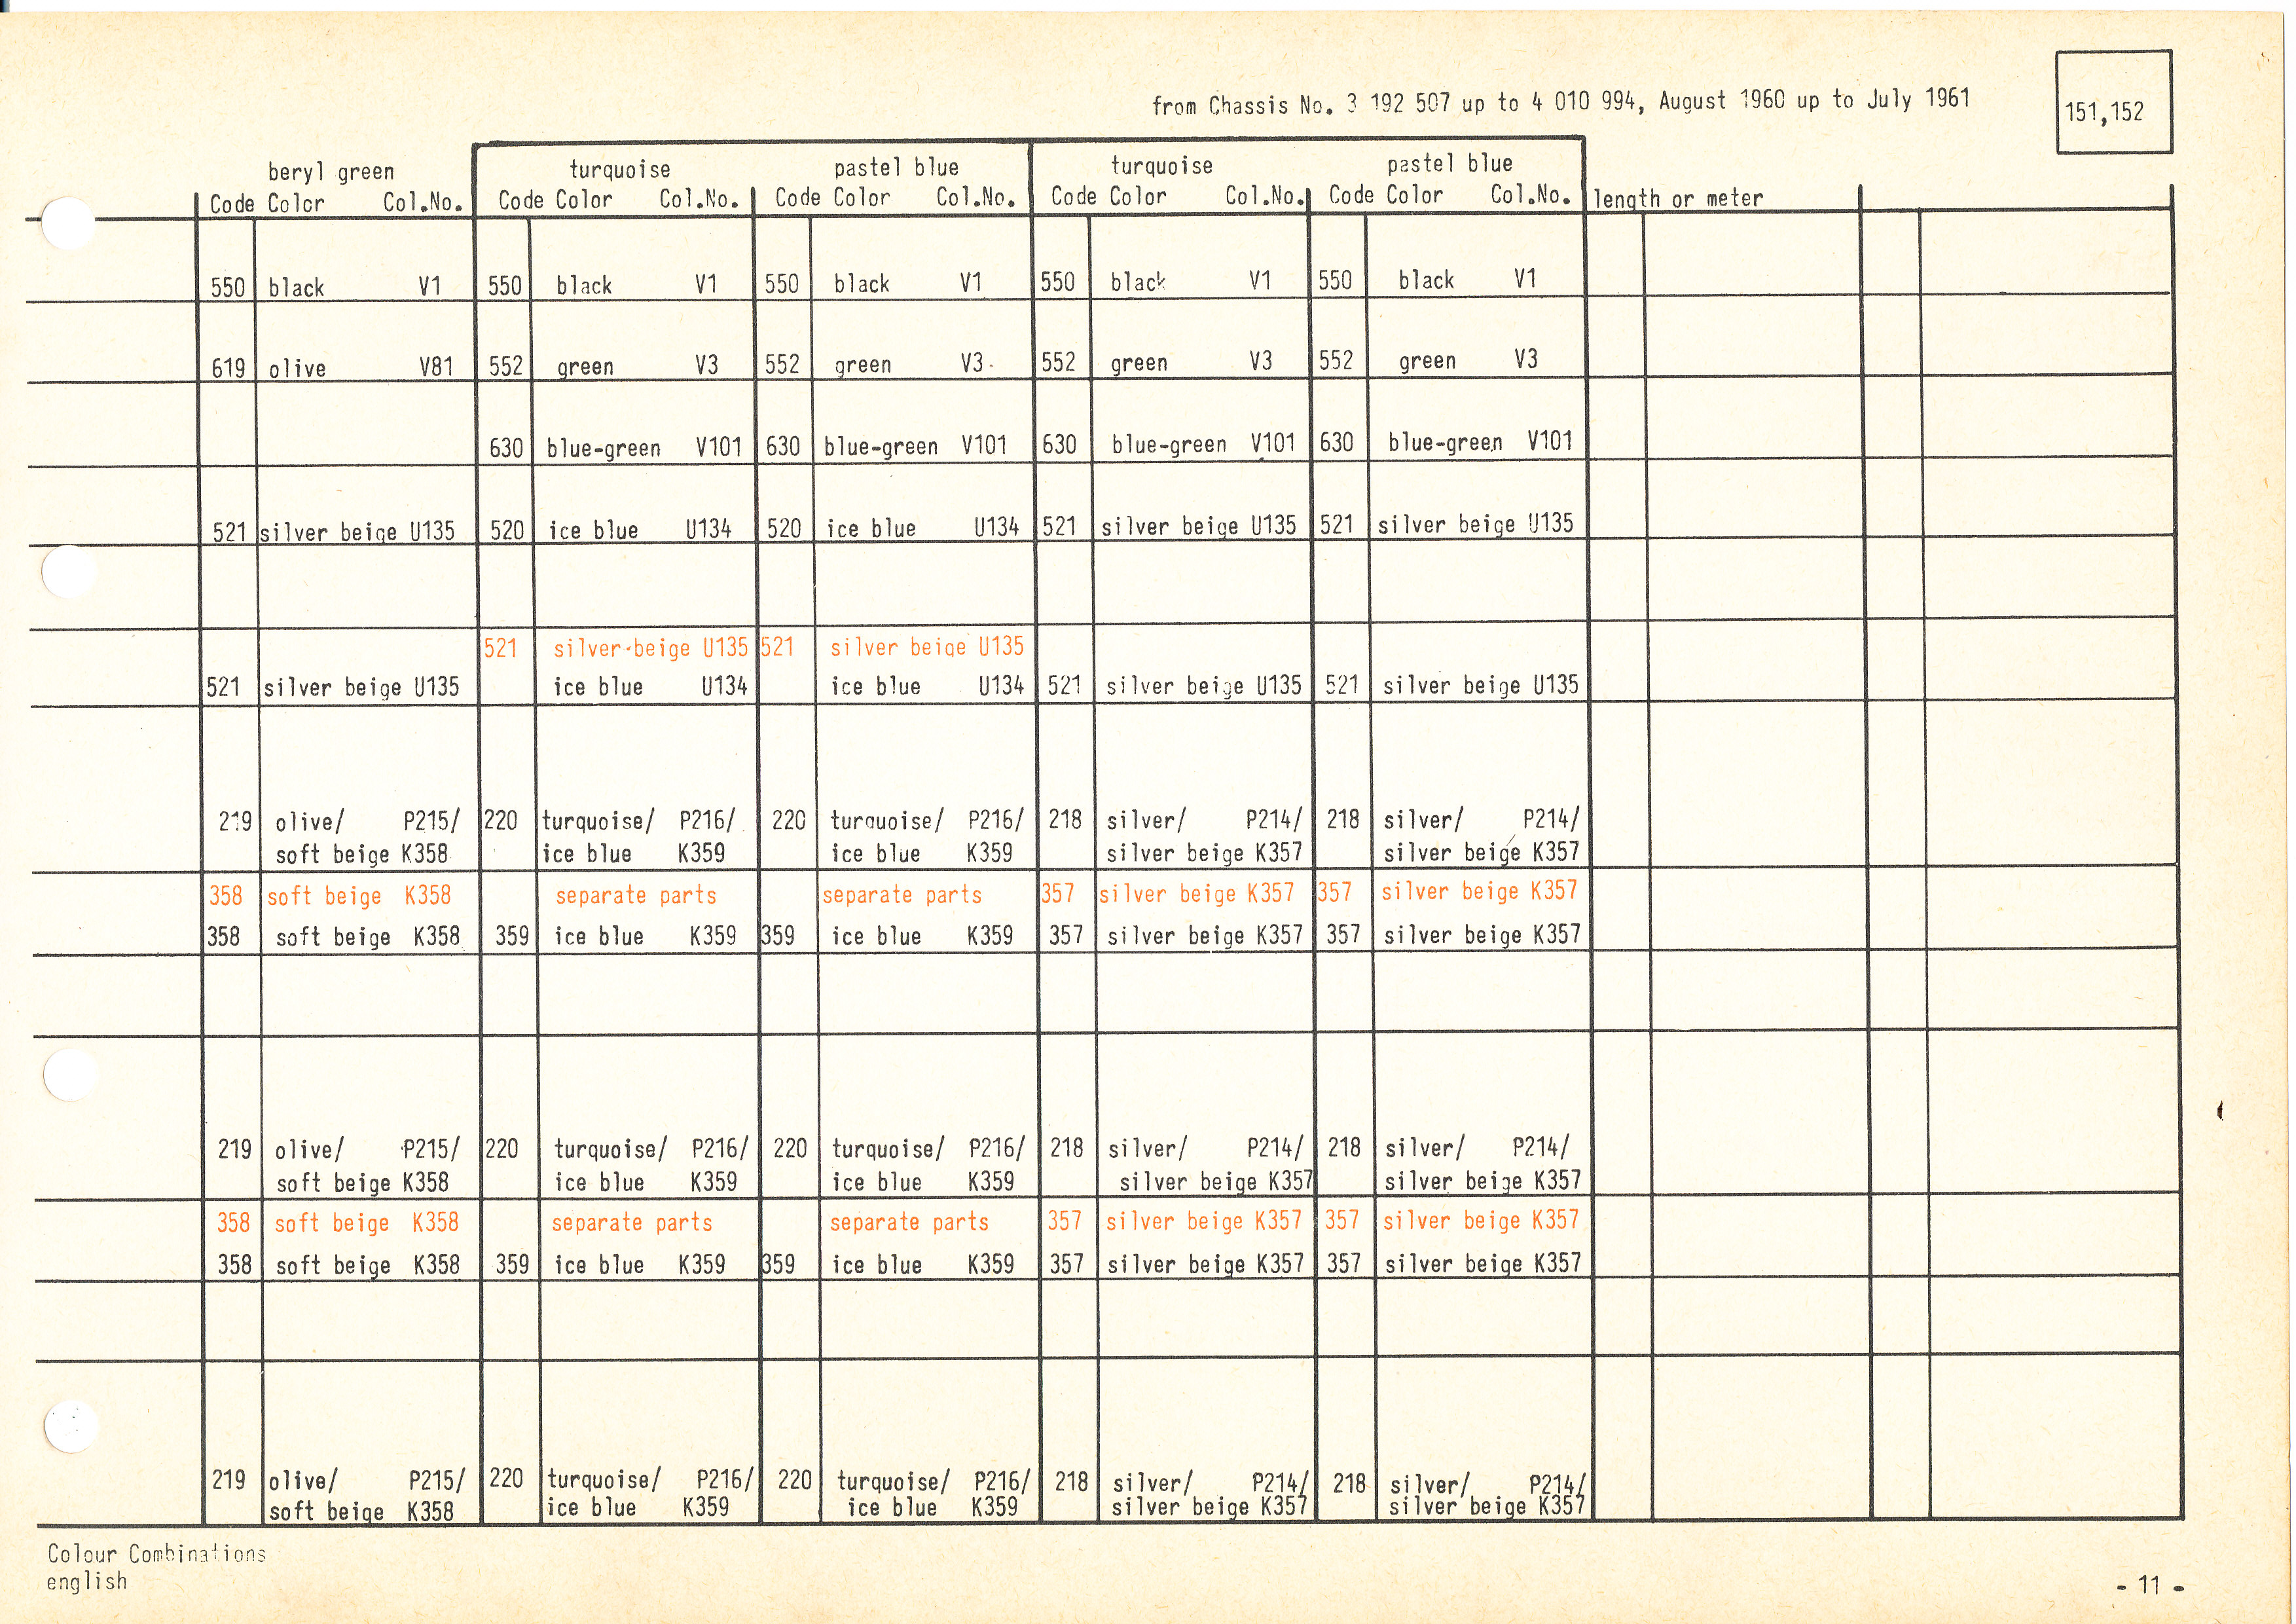 from Chassis No. 3 192 507 up to 4 010 994, August 1960 up to July 1961
151,152
beryl green turquoise pastel blue turquoise pastel blue
Code Color Col.No. Code Color Col.No. Code Color Col.No. Code Color Col.No. Code Color Col.No. length or meter
550 black V1 550 black V1 550 black V1 550 black V1 550 black V1
619 olive V81 552 green V3 552 green V3 552 green V3 552 green V3
630 blue-green V101 630 blue-green V101 630 blue-green V101 630 blue-green V101
521 silver beige U135 520 ice blue U134 520 ice blue U134 521 silver beige U135 521 silver beige U135
521 silver-beige U135 521 silver beige U135
521 silver beige U135 ice blue U134 ice blue U134 521 silver beige U135 521 silver beige U135
219 olive/ P215/ 220 turquoise/ P216/ 220 turquoise/ P216/ 218 silver/ P214/ 218 silver/ P214/
soft beige K358 ice blue K359 ice blue K359 silver beige K357 silver beige K357
358 soft beige K358 separate parts separate parts 357 silver beige K357 357 silver beige K357
358 soft beige K358 359 ice blue K359 359 ice blue K359 357 silver beige K357 357 silver beige K357
219 olive/ P215/ 220 turquoise/ P216/ 220 turquoise/ P216/ 218 silver/ P214/ 218 silver/ P214/
soft beige K358 ice blue K359 ice blue K359 silver beige K357 silver beige K357
358 soft beige K358 separate parts separate parts 357 silver beige K357 357 silver beige K357
358 soft beige K358 359 ice blue K359 359 ice blue K359 357 silver beige K357 357 silver beige K357
219 olive/ P215/ 220 turquoise/ P216/ 220 turquoise/ P216/ 218 silver/ P214/ 218 silver/ P214/
soft beige K358 ice blue K359 ice blue K359 silver beige K357 silver beige K357
Colour Combinations
english
- 11 -